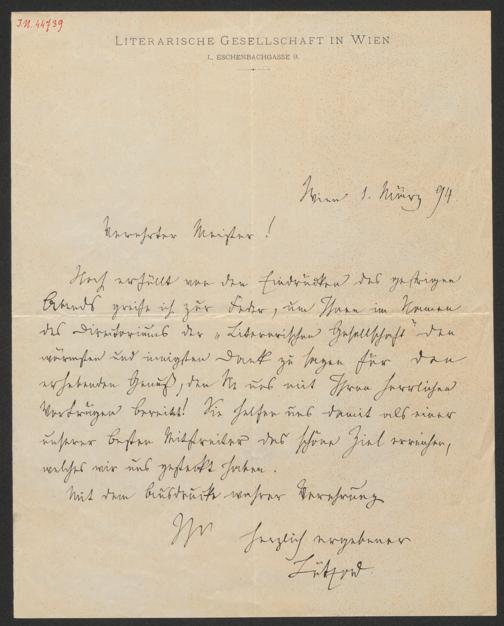 J.N. 44739
LITERARISCHE GESELLSCHAFT IN WIEN
I., ESCHENBACHGASSE 9.
Wien 1. März 94
Verehrter Meister!
Noch erfüllt von den Eindrücken des gestrigen
Abends greife ich zur Feder, um Ihnen im Namen
des Directoriums der „Literarischen Gesellschaft" den
wärmsten und innigsten Dank zu sagen für den
erhebenden Genuß, den Sie uns mit Ihren herrlichen
Vorträgen bereitet! Sie helfen uns damit als einer
unserer besten Mitstreiter das schöne Ziel erreichen,
welches wir uns gesteckt haben.
Mit dem Ausdrucke wahrer Verehrung
Ihr herzlich ergebener
Lützow